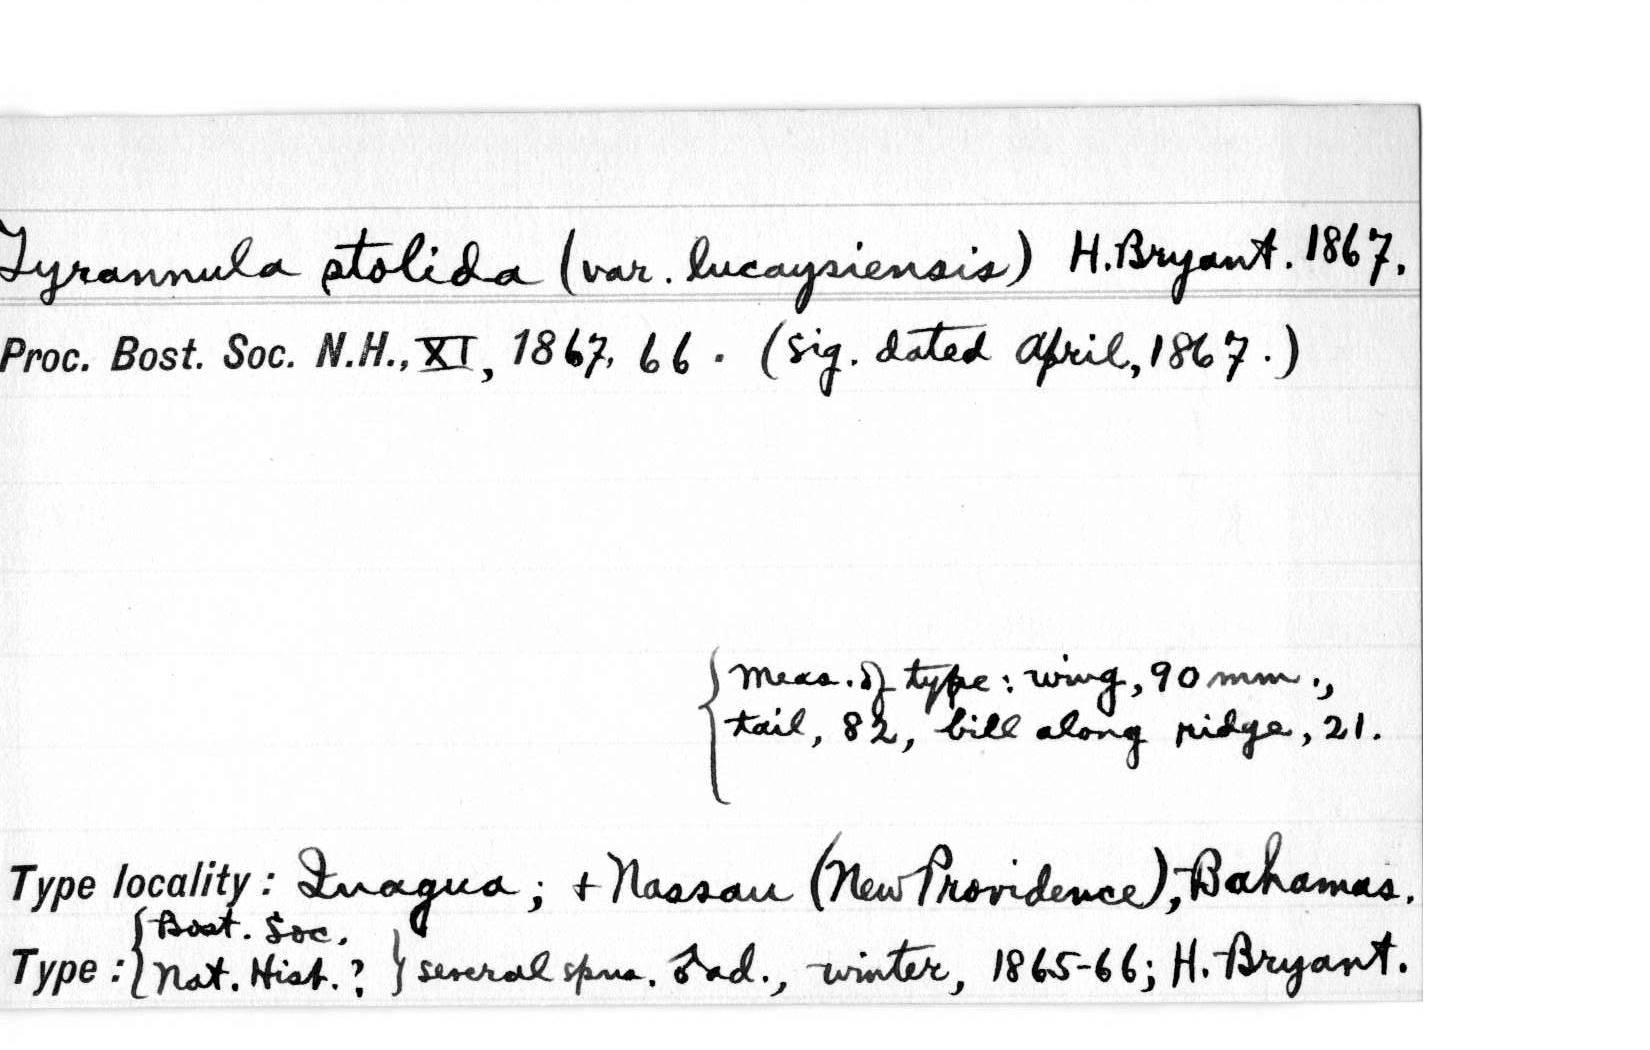 Tyrannula stolida (var. lucaysiensis) H. Bryant. 1867.
Proc. Bost. Soc. N.H., XI, 1867, 66. (Sig. dated April, 1867.)
{ Meas. of type: wing, 90 mm.,
tail, 82, bill along ridge, 21.
Type locality: Inagua; + Nassau (New Providence), Bahamas.
{ Bost. Soc.
Type: Nat. Hist. ? } several spms. ♂ ad., winter, 1865-66; H. Bryant.